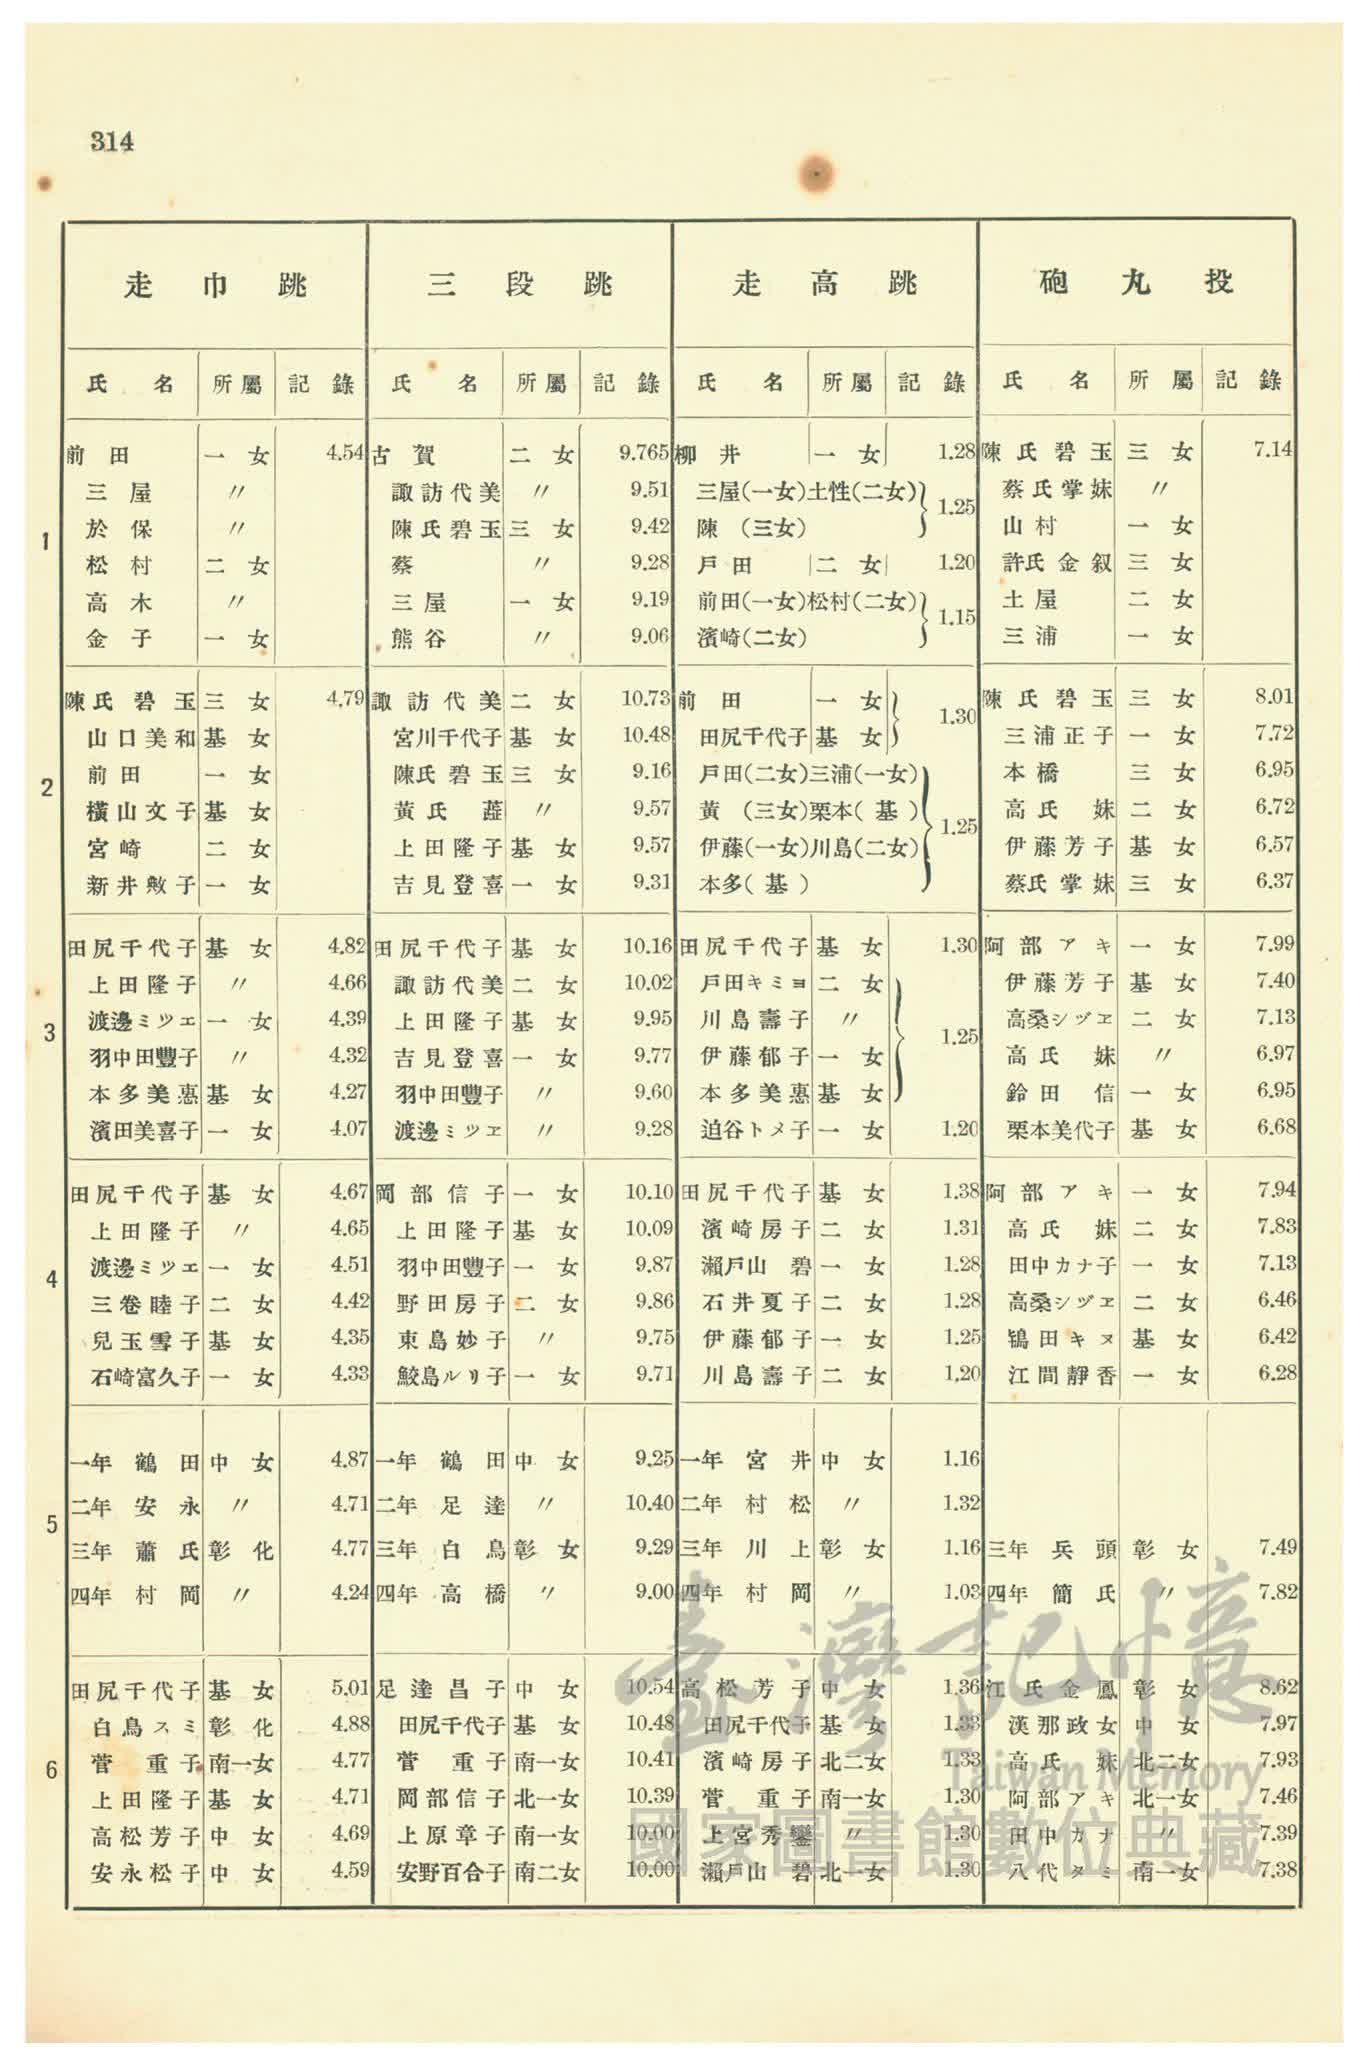 314
走巾跳 三段跳 走高跳 砲丸投
氏名 所屬 記錄 氏名 所屬 記錄 氏名 所屬 記錄 氏名 所屬 記錄
前田 一女 4.54 古賀 二女 9.765 柳井 一女 1.28 陳氏碧玉 三女 7.14
三屋 〃 諏訪代美 〃 9.51 三屋(一女)土性(二女) 1.25 蔡氏掌妹 〃
1 於保 〃 陳氏碧玉 三女 9.42 陳(三女) 山村 一女
松村 二女 蔡 〃 9.28 戸田 二女 1.20 許氏金釵 三女
高木 〃 三屋 一女 9.19 前田(一女)松村(二女) 1.15 土屋 二女
金子 一女 熊谷 〃 9.06 濱崎(二女) 三浦 一女
陳氏碧玉 三女 4.79 諏訪代美 二女 10.73 前田 一女 1.30 陳氏碧玉 三女 8.01
山口美和 基女 宮川千代子 基女 10.48 田尻千代子 基女 三浦正子 一女 7.72
2 前田 一女 陳氏碧玉 三女 9.16 戸田(二女)三浦(一女) 本橋 三女 6.95
橫山文子 基女 黃氏 〃 9.57 黃(三女)栗本(基) 1.25 高氏妹 二女 6.72
宮崎 二女 上田隆子 基女 9.57 伊藤(一女)川島(二女) 伊藤芳子 基女 6.57
新井敷子 一女 吉見登喜 一女 9.31 本多(基) 蔡氏掌妹 三女 6.37
田尻千代子 基女 4.82 田尻千代子 基女 10.16 田尻千代子 基女 1.30 阿部アキ 一女 7.99
上田隆子 〃 4.66 諏訪代美 二女 10.02 戸田キミヨ 二女 伊藤芳子 基女 7.40
3 渡邊ミツエ 一女 4.39 上田隆子 基女 9.95 川島壽子 〃 1.25 高桑シヅヱ 二女 7.13
羽中田豐子 〃 4.32 吉見登喜 一女 9.77 伊藤郁子 一女 高氏妹 〃 6.97
本多美惠 基女 4.27 羽中田豐子 〃 9.60 本多美惠 基女 鈴田信 一女 6.95
濱田美喜子 一女 4.07 渡邊ミツヱ 〃 9.28 迫谷トメ子 一女 1.20 栗本美代子 基女 6.68
田尻千代子 基女 4.67 岡部信子 一女 10.10 田尻千代子 基女 1.38 阿部アキ 一女 7.94
上田隆子 〃 4.65 上田隆子 基女 10.09 濱崎房子 二女 1.31 高氏妹 二女 7.83
4 渡邊ミツエ 一女 4.51 羽中田豐子 一女 9.87 瀨戸山碧 一女 1.28 田中カナ子 一女 7.13
三卷睦子 二女 4.42 野田房子 二女 9.86 石井夏子 二女 1.28 高桑シヅヱ 二女 6.46
兒玉雪子 基女 4.35 東島妙子 〃 9.75 伊藤郁子 一女 1.25 鴇田キヌ 基女 6.42
石崎富久子 一女 4.33 鮫島ルリ子 一女 9.71 川島壽子 二女 1.20 江間靜香 一女 6.28
一年 鶴田 中女 4.87 一年 鶴田 中女 9.25 一年 宮井 中女 1.16
5 二年 安永 〃 4.71 二年 足達 〃 10.40 二年 村松 〃 1.32
三年 蕭氏 彰化 4.77 三年 白鳥 彰女 9.29 三年 川上 彰女 1.16 三年 兵頭 彰女 7.49
四年 村岡 〃 4.24 四年 高橋 〃 9.00 四年 村岡 〃 1.03 四年 簡氏 〃 7.82
田尻千代子 基女 5.01 足達昌子 中女 10.54 高松芳子 中女 1.36 江氏金鳳 彰女 8.62
白鳥スミ 彰化 4.88 田尻千代子 基女 10.48 田尻千代子 基女 1.33 漢那政女 中女 7.97
6 菅重子 南一女 4.77 菅重子 南一女 10.41 濱崎房子 北二女 1.33 高氏妹 北二女 7.93
上田隆子 基女 4.71 岡部信子 北一女 10.39 菅重子 南一女 1.30 阿部アキ 北一女 7.46
高松芳子 中女 4.69 上原章子 南一女 10.00 上宮秀鑾 〃 1.30 田中カナ 〃 7.39
安永松子 中女 4.59 安野百合子 南二女 10.00 瀨戸山碧 北一女 1.30 八代タミ 南一女 7.38
臺灣記憶
Taiwan Memory
國家圖書館數位典藏